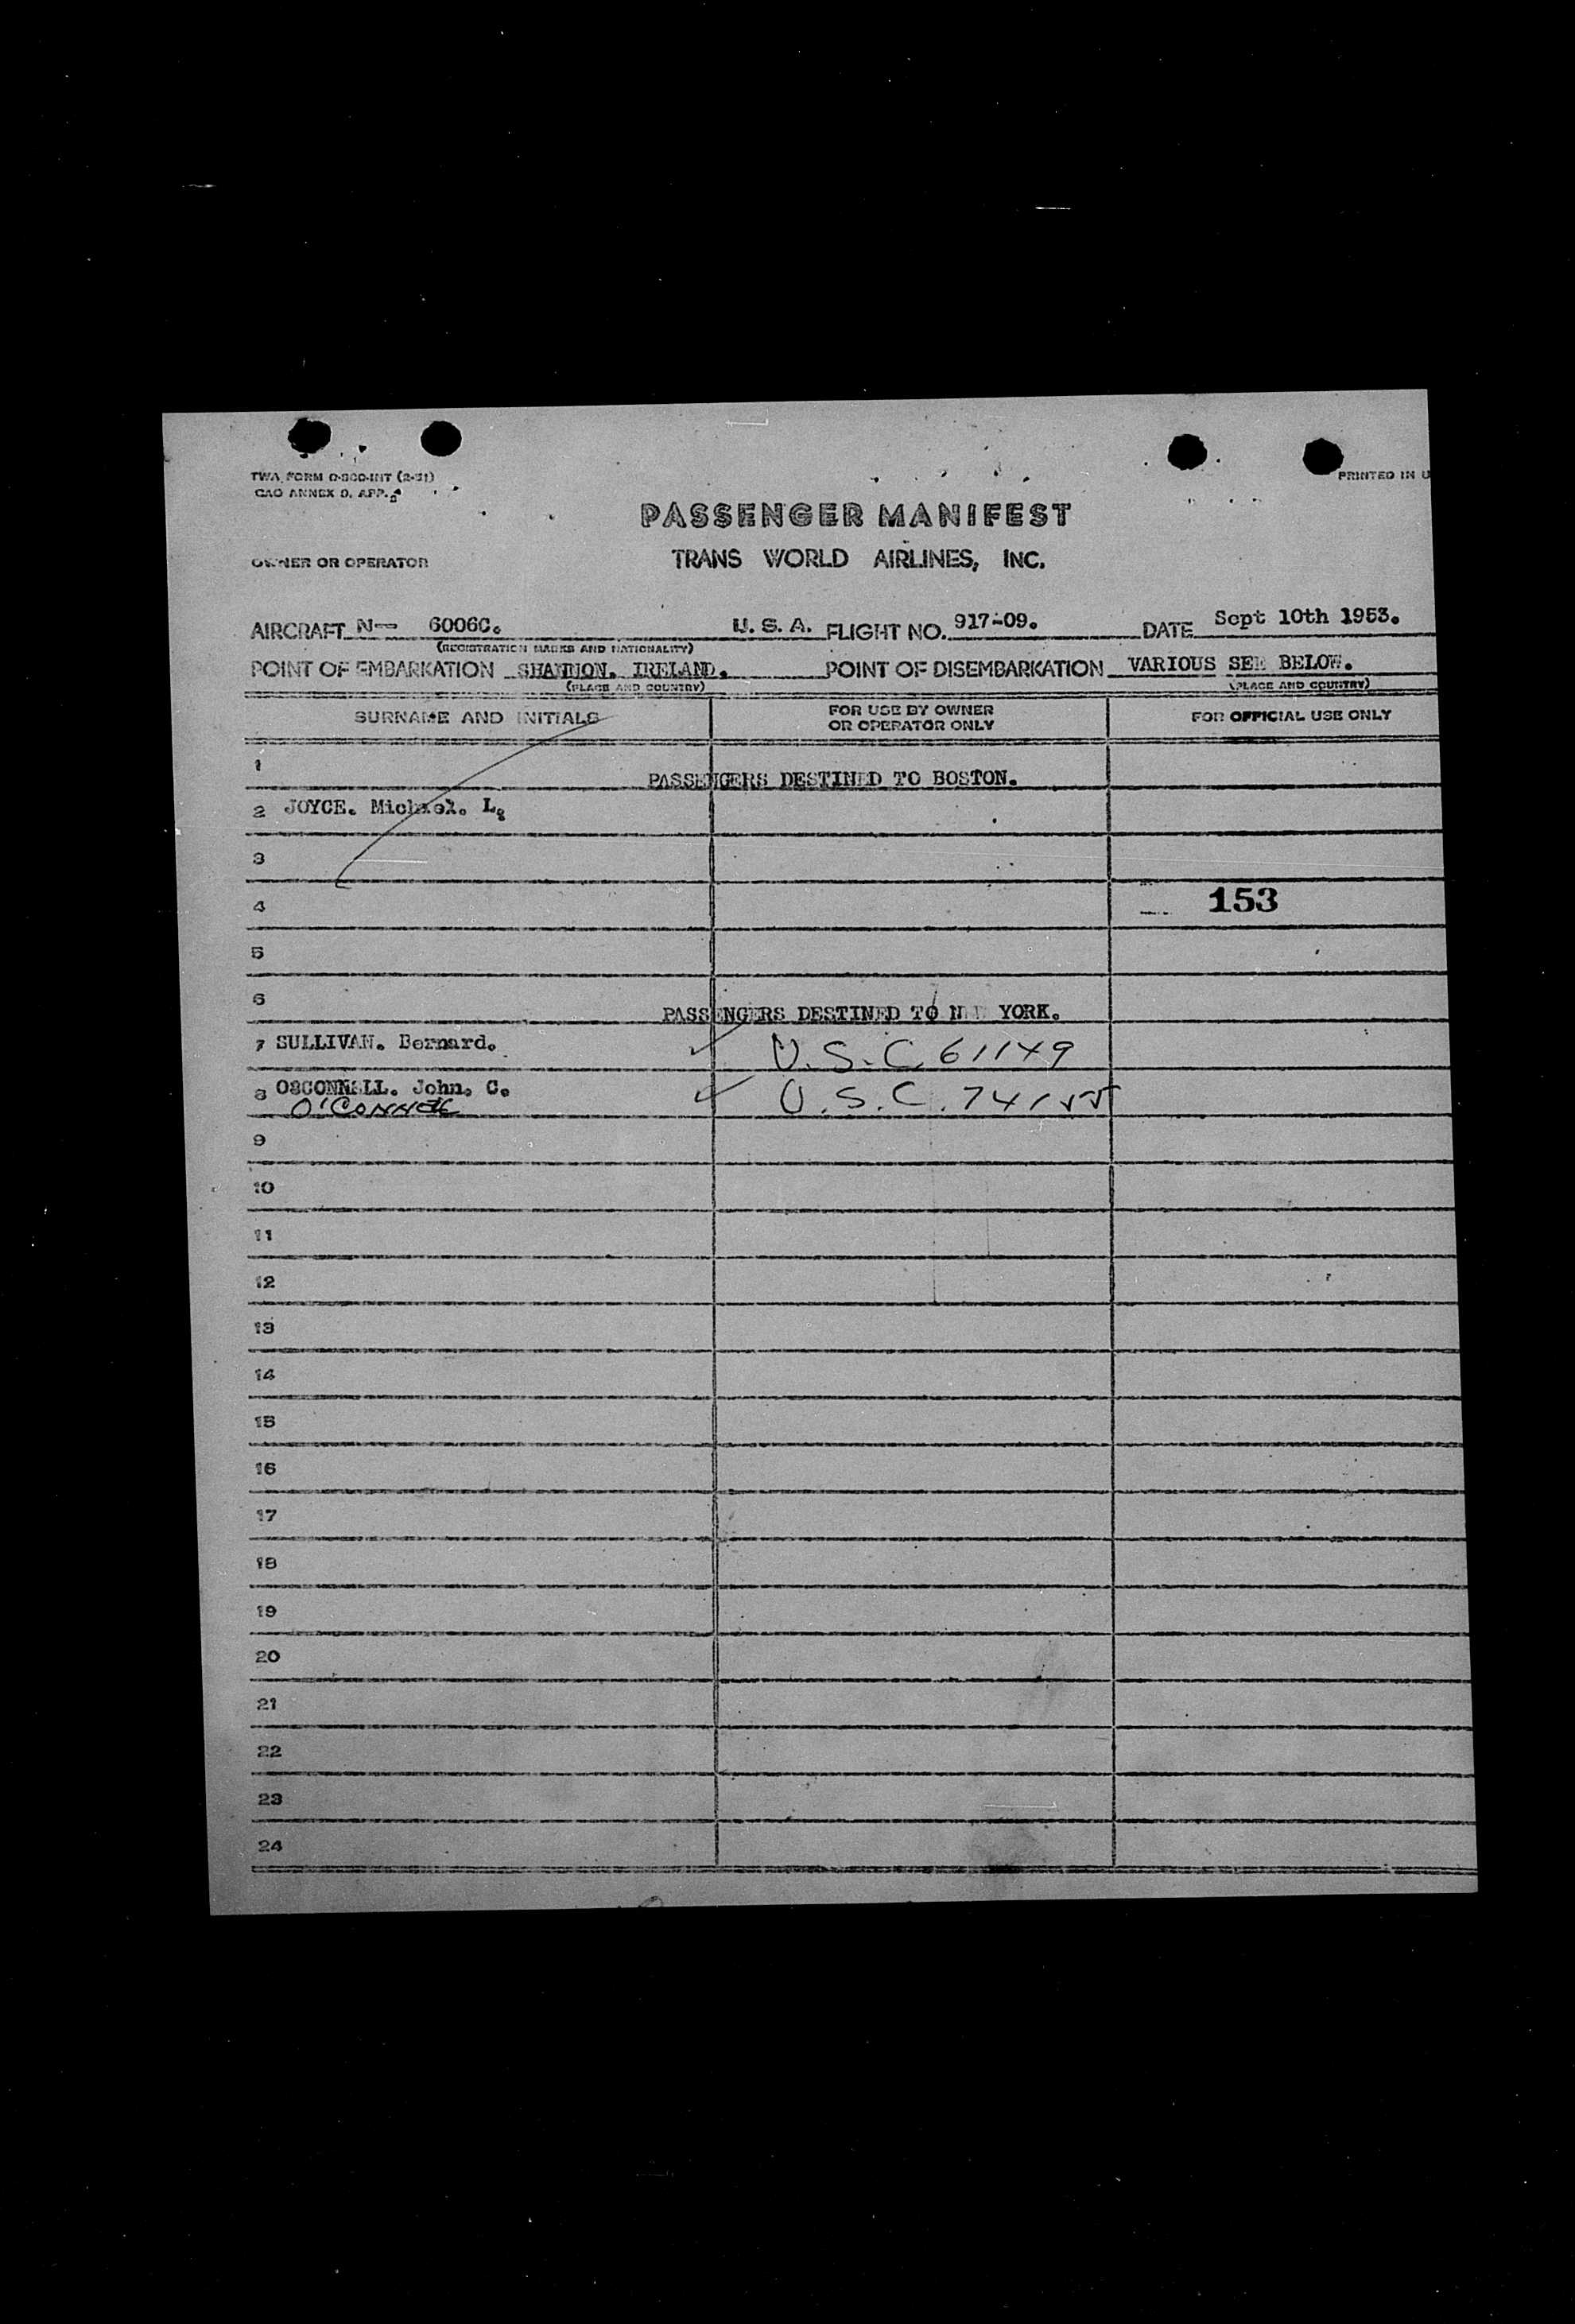 TWA FORM O-800-INT (2-51)
CAO ANNEX 9, APP.
PRINTED IN U
PASSENGER MANIFEST
OWNER OR OPERATOR
TRANS WORLD AIRLINES, INC.
AIRCRAFT N- 6006C. U. S. A. FLIGHT NO. 917-09. DATE Sept 10th 1953.
(REGISTRATION MARKS AND NATIONALITY)
POINT OF EMBARKATION SHANNON. IRELAND. POINT OF DISEMBARKATION VARIOUS SEE BELOW.
(PLACE AND COUNTRY) (PLACE AND COUNTRY)
SURNAME AND INITIALS FOR USE BY OWNER OR OPERATOR ONLY FOR OFFICIAL USE ONLY
1 PASSENGERS DESTINED TO BOSTON.
2 JOYCE. Michael. L.
3
4 153
5
6 PASSENGERS DESTINED TO NEW YORK.
7 SULLIVAN. Bernard. U.S.C 61149
8 O8CONNELL. John. C. U.S.C. 74155
O'CONNELL
9
10
11
12
13
14
15
16
17
18
19
20
21
22
23
24